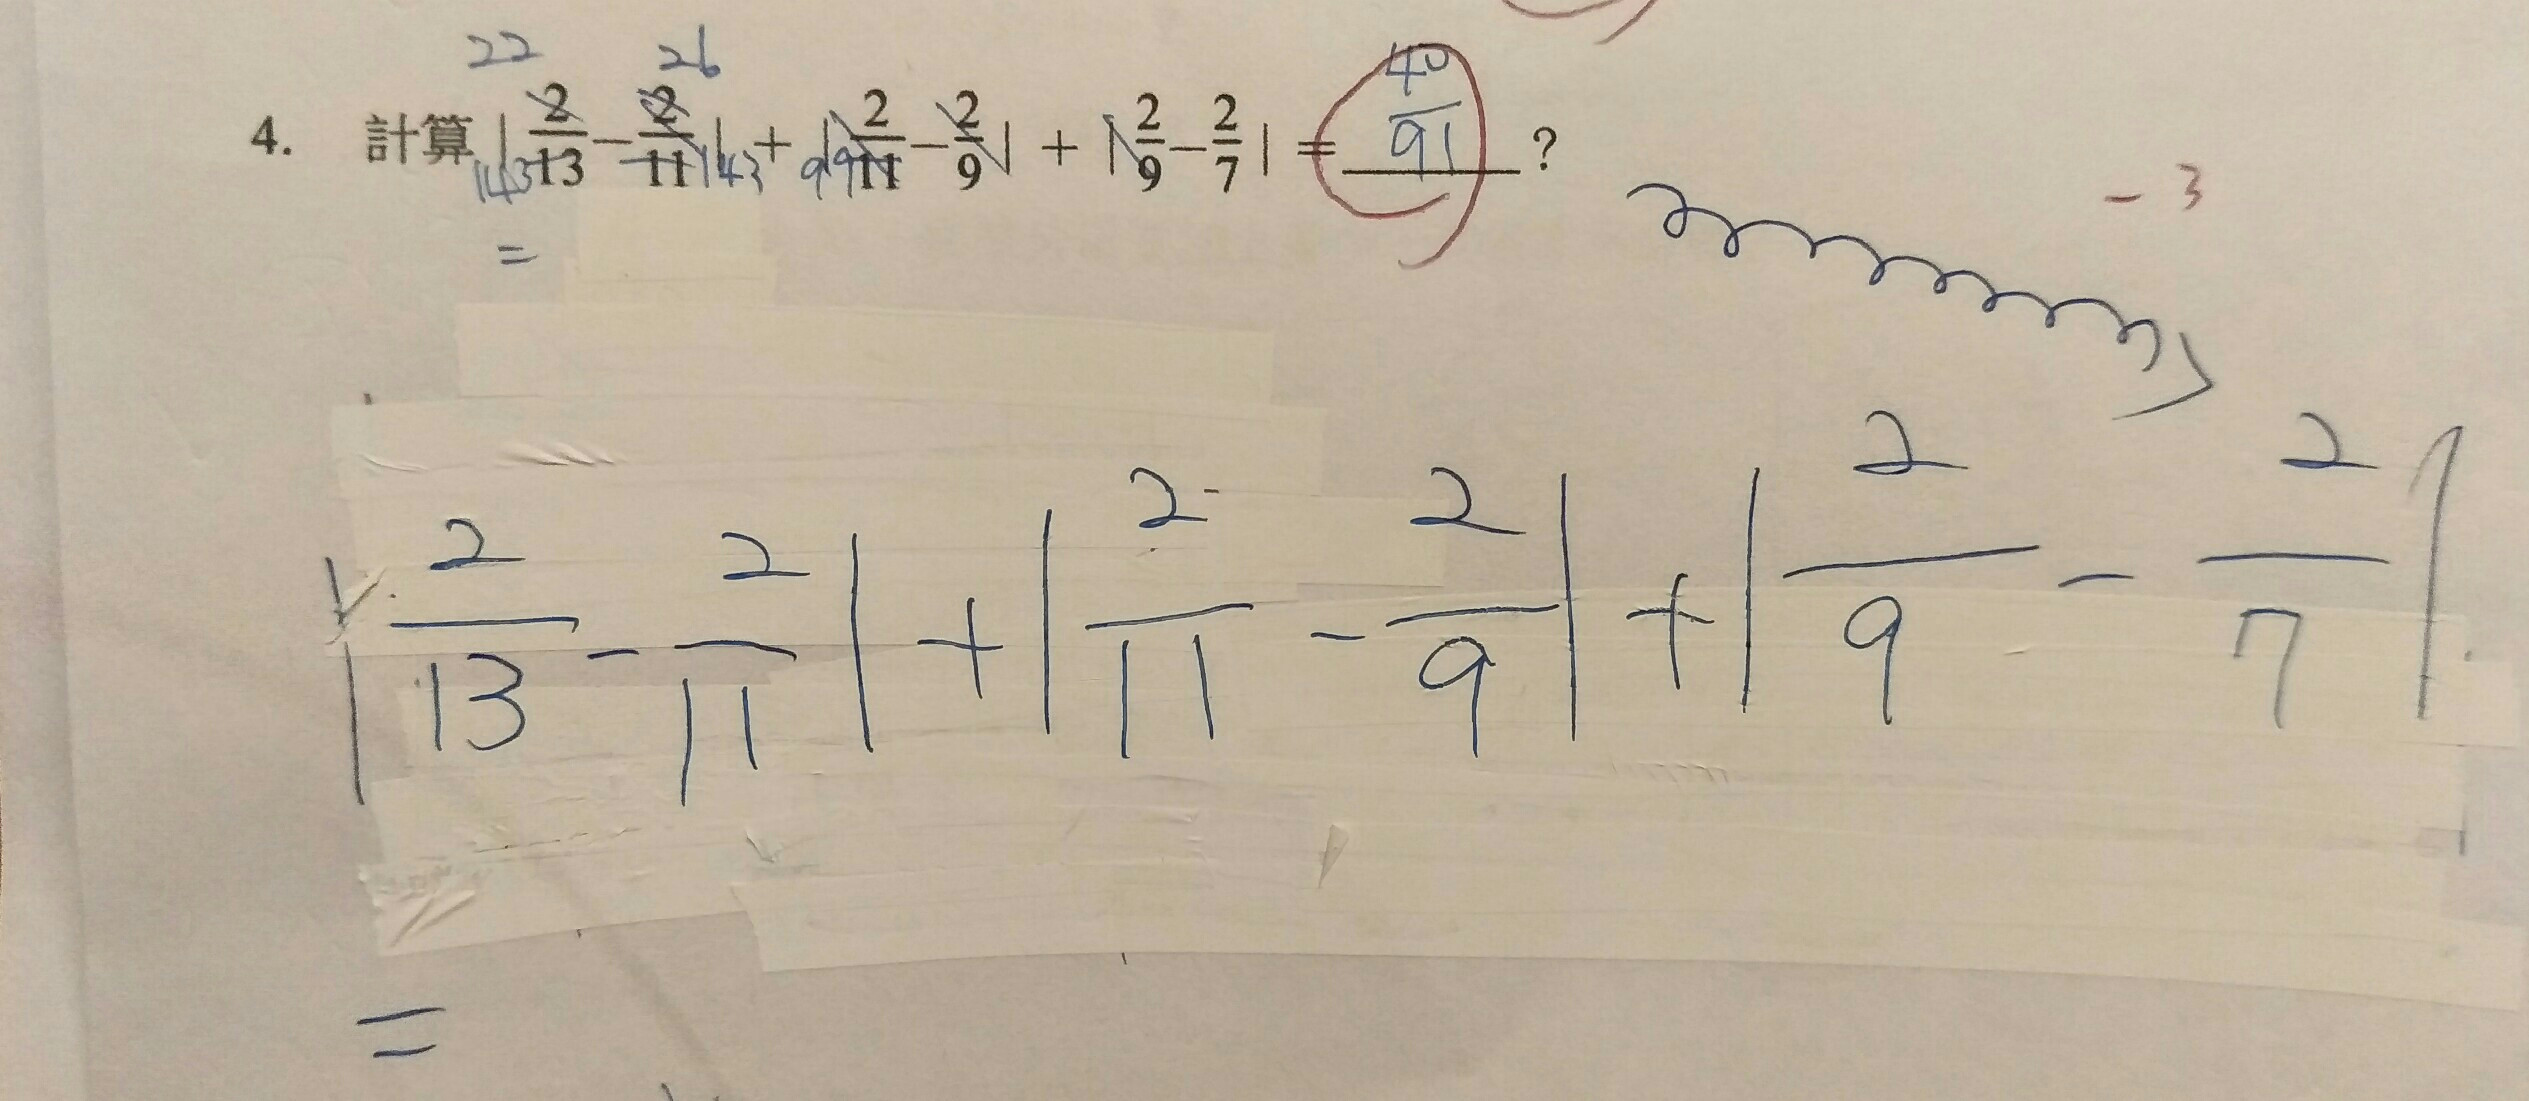 22 26 40
4. 計算 | 2/13 − 2/11 | + | 2/11 − 2/9 | + | 2/9 − 2/7 | = 40/91 ?
143 143 99
− 3
=
| 2/13 − 2/11 | + | 2/11 − 2/9 | + | 2/9 − 2/7 |
=